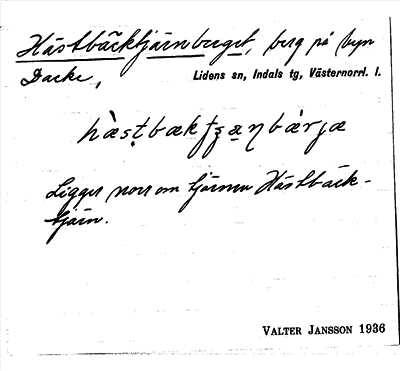 Hästbäcktjärnberget, berg på byn
Dacke,
Lidens sn, Indals tg, Västernorrl. l.
Ligger norr om tjärnen Hästbäck-
tjärn.
VALTER JANSSON 1936